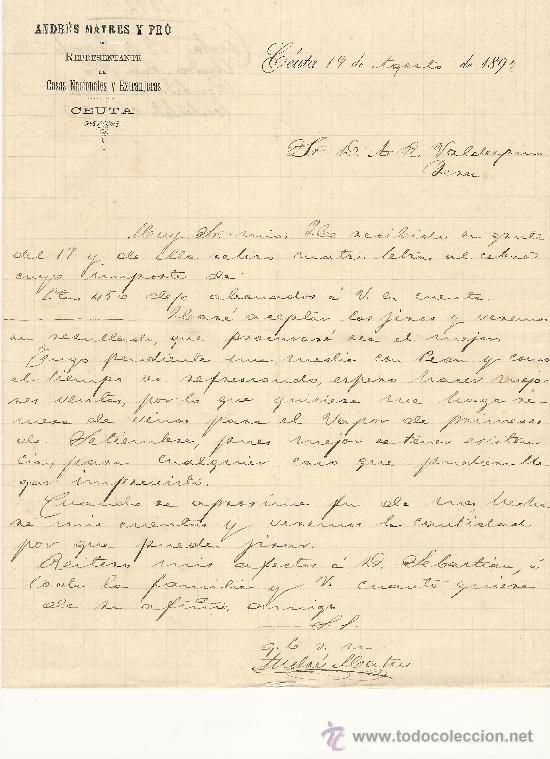 ANDRÉS MATRES Y PRÓ
REPRESENTANTE
DE
Casas Nacionales y Extranjeras
CEUTA
Ceuta 19 de Agosto de 1892
Sr. D. A. R. Valdespino
Jerez
Muy Sr. mio: He recibido su grata
del 17 y de ella retiro cuatro letras al cobro
cuyo importe de
Ptas 450 dejo abonados á V. en cuenta.
Haré aceptar los giros y veremos
su resultado, que procuraré sea el mejor.
Tengo pendiente una media con Pean y como
el tiempo va refrescando, espero hacer mejo
res ventas, por lo que quisiera me haga re-
mesa de vinos para el Vapor de primeros
de Setiembre, pues mejor es tener existen
cias, para cualquier caso que pueda lle
gar imprevisto.
Cuando se aproxime fin de mes, haré
mis cuentas y veremos la cantidad
por que puede girar.
Reitero mis afectos á D. Sebastian, á
toda la familia y V. cuanto quiera
de su aftmo. amigo
S. S.
q. b. s. m.
Andrés Matres
www.todocoleccion.net